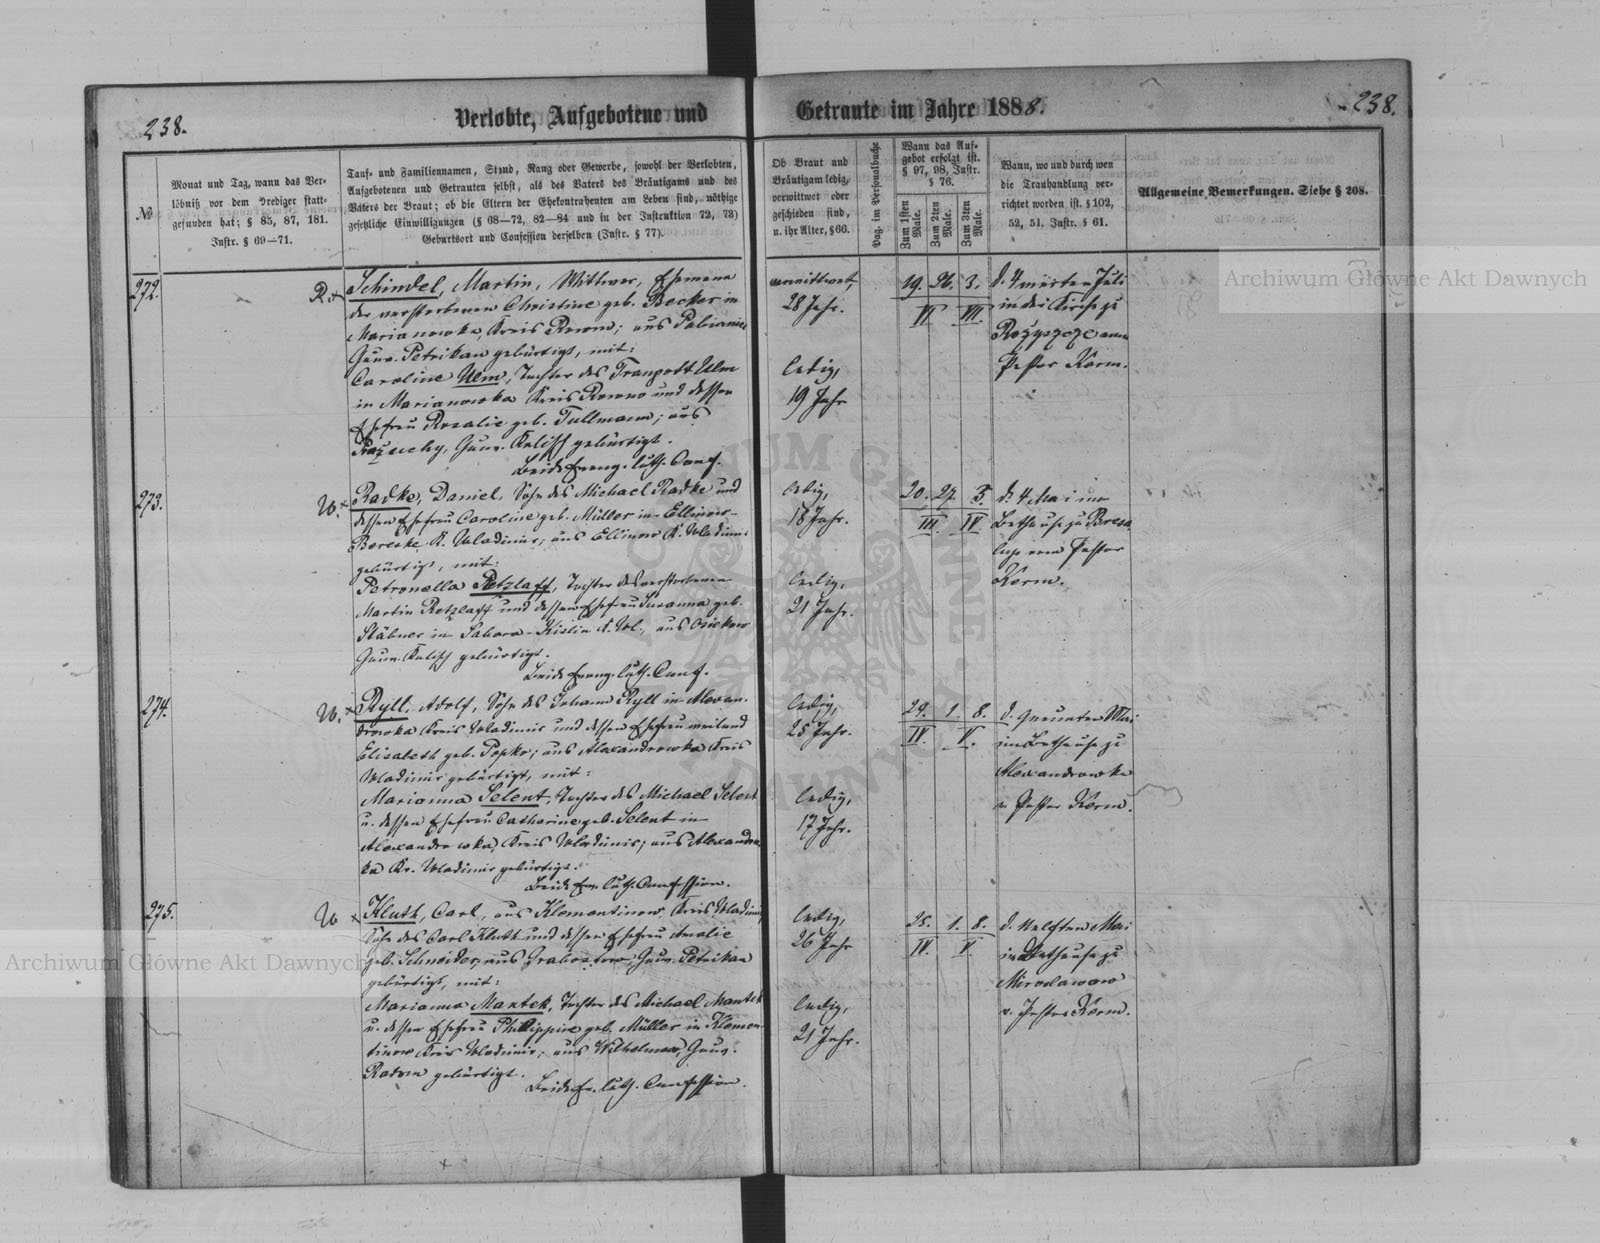 238.
Verlobte, Aufgebotene und
Getraute im Jahre 1888.
238.
№
Monat und Tag, wann das Ver-
löbniß vor dem Prediger statt-
gefunden hat; § 85, 87, 181.
Instr. § 69—71.
Tauf- und Familiennamen, Stand, Rang oder Gewerbe, sowohl der Verlobten,
Aufgebotenen und Getrauten selbst, als des Vaters des Bräutigams und des
Vaters der Braut; ob die Eltern der Ehekontrahenten am Leben sind, nöthige
gesetzliche Einwilligungen (§ 68—72, 82—84 und in der Instruktion 72, 73)
Geburtsort und Confession derselben (Instr. § 77).
Ob Braut und
Bräutigam ledig,
verwittwet oder
geschieden sind,
u. ihr Alter, § 66.
Pag. im Personalbuche
Wann das Auf-
gebot erfolgt ist.
§ 97, 98, Instr.
§ 76.
Zum 1sten Male.
Zum 2ten Male.
Zum 3ten Male.
Wann, wo und durch wen
die Trauhandlung ver-
richtet worden ist. § 102,
52, 51. Instr. § 61.
Allgemeine Bemerkungen. Siehe § 208.
272.
R.
Schindel, Martin, Wittwer, Ehemann
der verstorbenen Christine geb. Becker in
Marianowka, Kreis Rowno; aus Pabianice
Gouv. Petrikau gebürtigt, mit:
Caroline Ulm, Tochter des Ulm
in Marianowka Kreis Rowno und dessen
Ehefrau Rosalie geb. Tullmann; aus
Gouv. Kalisch gebürtigt.
Beide Evang. luth. Conf.
verwittwet,
28 Jahr.
ledig,
19 Jahr
19. 26. 3.
VI VII
d. vierten Juli
in der Kirche zu
Rozyszcze vom
Pastor Kerm.
273.
W.
Radke, Daniel, Sohn des Michael Radke und
dessen Ehefrau Caroline geb. Müller in Ellinow-
K. Wladimir, aus Ellinow K. Wladimir
gebürtigt, mit:
Petronella Retzlaff, Tochter des verstorbenen
Martin Retzlaff und dessen Ehefrau Susanna geb.
Stäbner in K. Wl., aus
Gouv. Kalisch gebürtigt.
Beide Evang. luth. Conf.
ledig,
18 Jahr.
ledig,
21 Jahr.
20. 27. 3.
III IV
d. 4 Mai im
Bethause zu
vom Pastor
Kerm.
274.
W.
Ryll, Adolf, Sohn des Johann Ryll in Alexan-
drowka Kreis Wladimir und dessen Ehefrau weiland
Elisabeth geb. Popko; aus Alexandrowka Kreis
Wladimir gebürtigt, mit:
Marianna Selent, Tochter des Michael Selent
u. dessen Ehefrau Catharine geb. Selent in
Alexandrowka, Kreis Wladimir; aus Alexandrow-
ka Kr. Wladimir gebürtigt.
Beide Ev. luth. Confession.
ledig,
25 Jahr.
ledig,
17 Jahr.
24. 1. 8.
IV. V.
d. Neunten Mai
im Bethause zu
Alexandrowka
v. Pastor Kerm.
275.
W
Kluth, Carl, aus Klementinow, Kreis Wladimir,
Sohn des Carl Kluth und dessen Ehefrau Amalie
geb. Schneider, aus Gouv. Petrikau
gebürtigt, mit:
Marianna Mantek, Tochter des Michael Mantek
u. dessen Ehefrau Philippine geb. Müller in Klemen-
tinow Kreis Wladimir; aus Gouv.
Radom gebürtigt.
Beide Ev. luth. Confession.
ledig,
26 Jahr
ledig,
21 Jahr.
25. 1. 8.
IV. V.
d. Zwelften Mai
im Bethause zu
Miroslawow
v. Pastor Kerm.
Archiwum Główne Akt Dawnych
Archiwum Główne Akt Dawnych